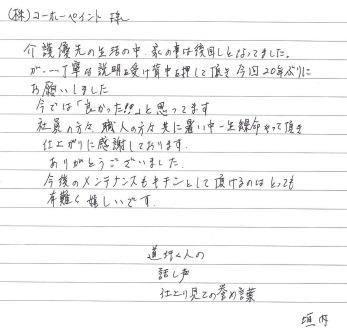 (株)コーホーペイント 様
介護優先の生活の中、家の事は後回しとなってました。
が…丁寧な説明を受け背中を押して頂き今回20年ぶりに
お願いしました
今では「良かった!!」と思ってます
社員の方々、職人の方々共に暑い中一生懸命やって頂き
仕上がりに感謝しております。
ありがとうございました。
今後のメンテナンスもキチンとして頂けるのはとっても
有難く嬉しいです。
道行く人の
話し声
仕上り見ての誉め言葉
垣内